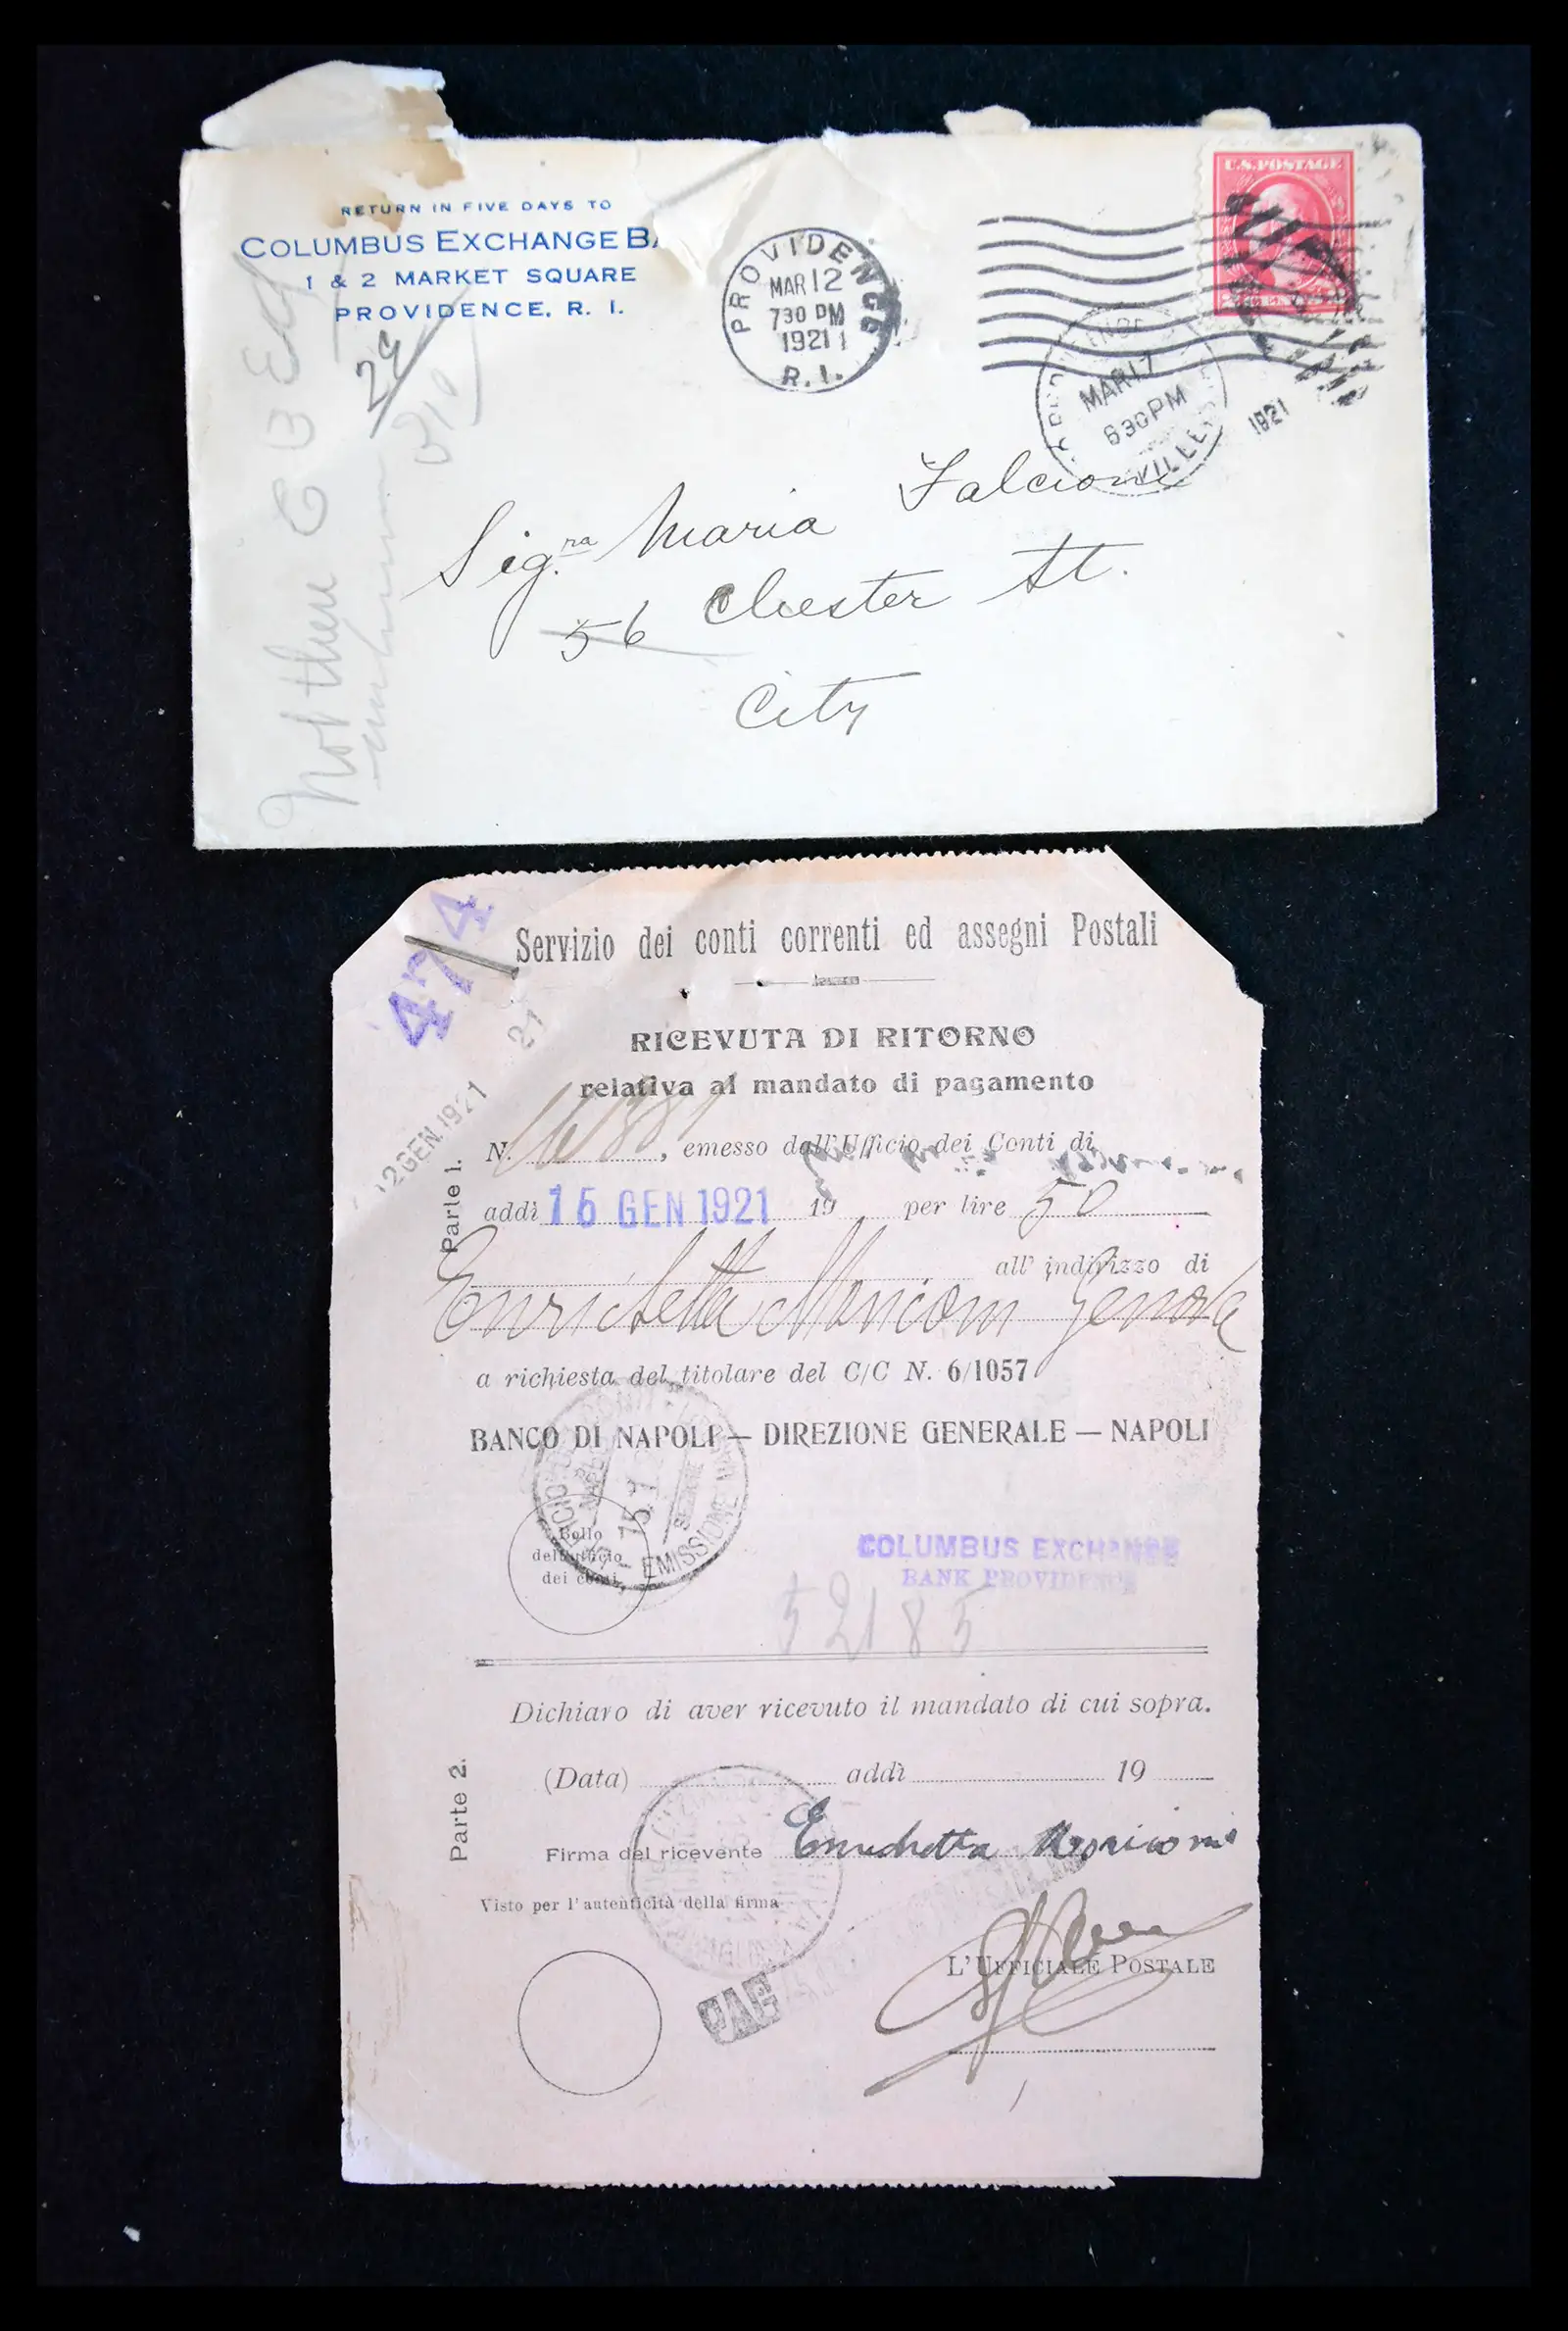 RETURN IN FIVE DAYS TO
COLUMBUS EXCHANGE BA
1 & 2 MARKET SQUARE
PROVIDENCE, R. I.
PROVIDENCE
MAR 12
7 30 PM
1921
R.I.
U.S. POSTAGE
MAR 17
6 30 PM
1921
VILLE
Sig.ra Maria Falcioni
56 Chester St.
City
Not there
474
Servizio dei conti correnti ed assegni Postali
RICEVUTA DI RITORNO
relativa al mandato di pagamento
12 GEN. 1921
21
Parte 1.
N. , emesso dall'Ufficio dei Conti di
addì 15 GEN 1921 19 per lire 50
all' indirizzo di
Enrichetta Marconi
a richiesta del titolare del C/C N. 6/1057
BANCO DI NAPOLI — DIREZIONE GENERALE — NAPOLI
EMISSIONE
Bollo
dell'ufficio
dei conti
COLUMBUS EXCHANGE
BANK PROVIDENCE
52185
Dichiaro di aver ricevuto il mandato di cui sopra.
Parte 2.
(Data) addì 19
Firma del ricevente Enrichetta
Visto per l'autenticità della firma
L'UFFICIALE POSTALE